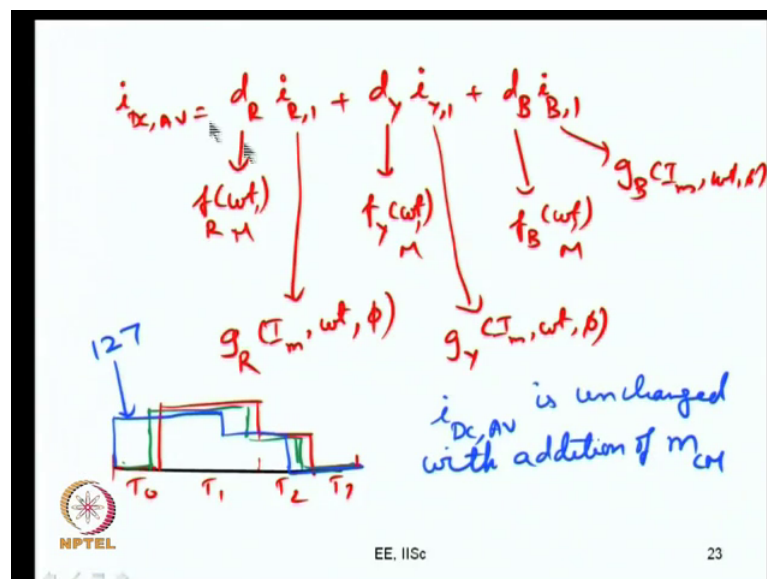 i_DC,AV = d_R i_R,1 + d_Y i_Y,1 + d_B i_B,1
f_R(ωt, M) f_Y(ωt, M) f_B(ωt, M) g_B(I_m, ωt, φ)
g_R(I_m, ωt, φ) g_Y(I_m, ωt, φ)
127
i_DC,AV is unchanged
with addition of m_CM
T_0 T_1 T_2 T_7
NPTEL
EE, IISc 23